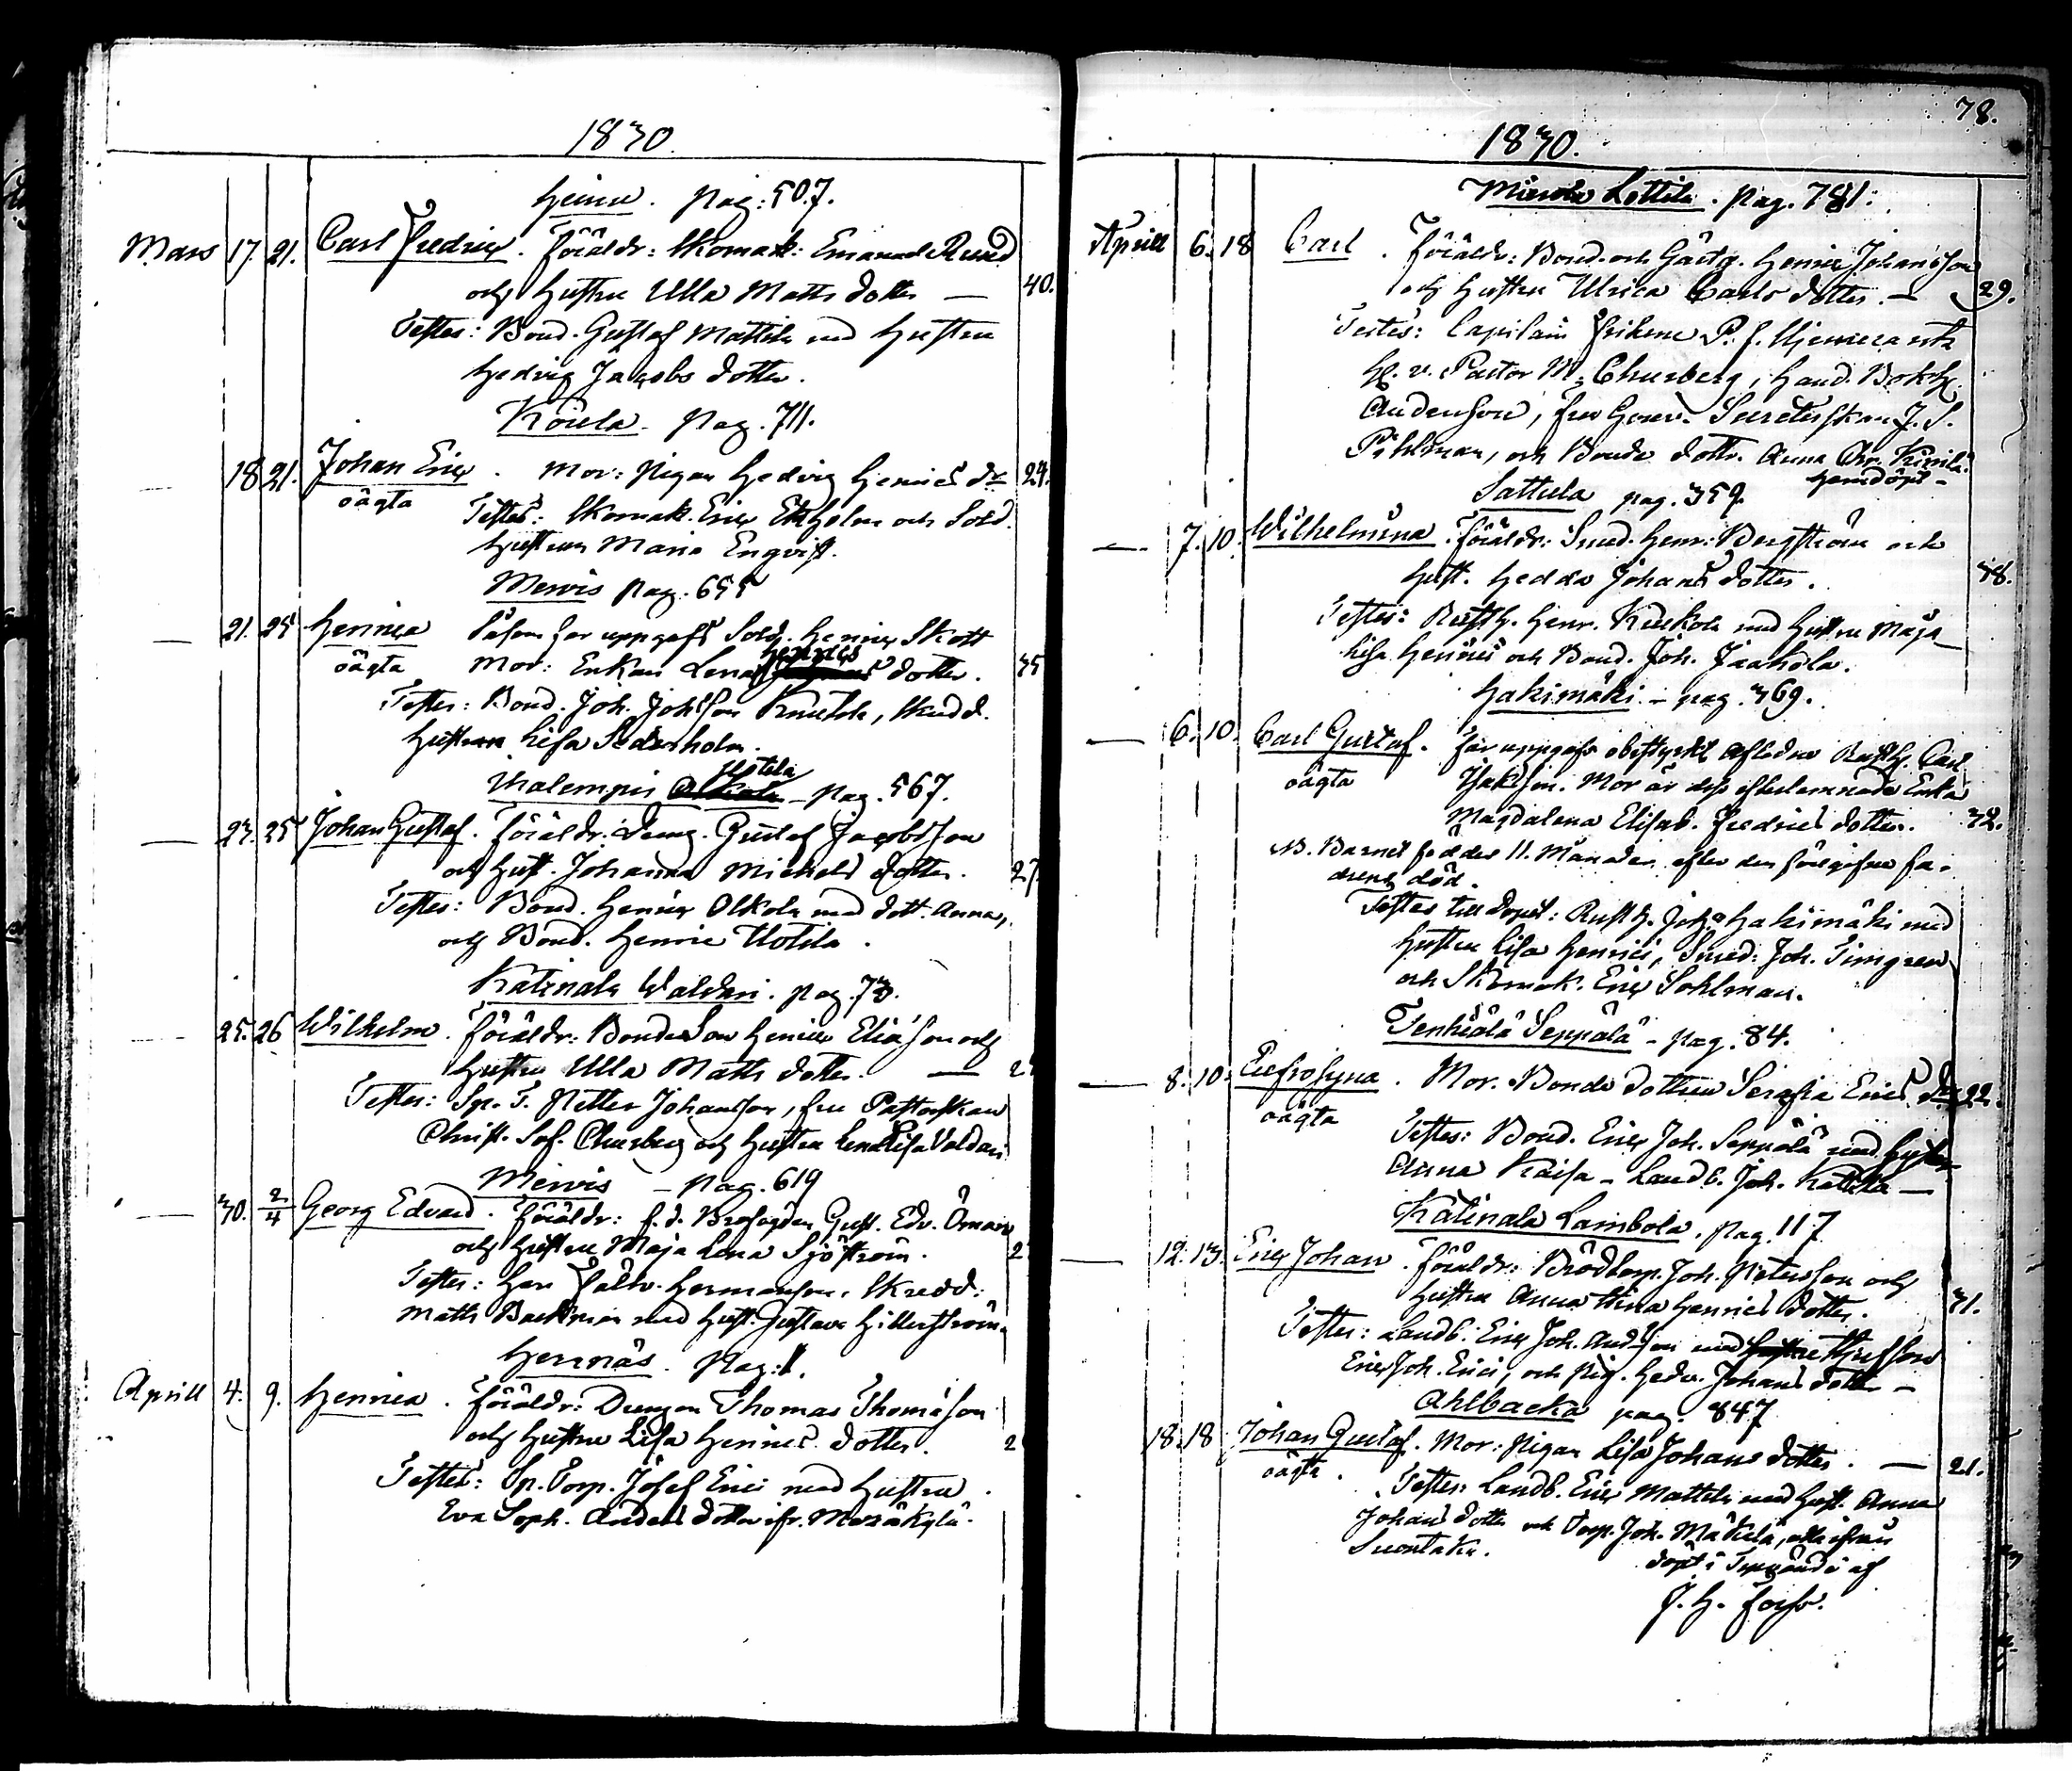 1830.
Heinu. pag: 507.
Mars 17. 21. Carl Fredric. Föräldr: Skomak: Emanuel
och Hustru Ulla Matts dotter — 40.
Testes: Bond. Gustaf Mattila med Hustru
Hedvig Jacobs dotter.
pag. 711.
— 18 21. Johan Eric. Mor: Pigan Hedvig Henrics dr 24.
oägta Testes: Skomak. Eric Ekholm och Sold.
Hustrun Maria Enqvist.
Mervis pag. 655
— 21. 25 Henrica Såsom far uppgafs Sold. Henric Skott
oägta Mor: Enkan Lena Henrics dotter. 35
Testes: Bond. Joh. Johsson Knutila, Skrädd.
Hustrun Lisa Sederholm.
Thalempis Uotila pag. 567.
— 23. 25 Johan Gustaf. Föräldr: Dreng. Gustaf Jacobsson
och Hust. Johanna Mickels dotter. 27.
Testes: Bond. Henric Olkola med dott. Anna,
och Bond. Henric Uotila.
Katinala Waldari. pag. 73.
25. 26 Wilhelm. Föräldr: Bonde Son Henric Eliasson och
Hustru Ulla Matts dotter. — 2
Testes: Sp. T. Petter Johansson, fru Pastorskan
Christ. Sof. Churberg och Hustru Lena Lisa Valdari
Mervis — pag. 619
— 30. 2/4 Georg Edvard. Föräldr: f.d. Brofogden Gust. Edv. Öman
och Hustru Maja Lena Sjöström. 2
Testes: Herr Fältv. Hermanson, Skrädd:
Matts Backman med Hust. Gustava Hillerström.
Herrnäs. Pag: 1.
Aprill 4. 9. Henrica. Föräldr: Drengen Thomas Thomasson
och Hustru Lisa Henrics dotter. 2
Testes: Sp. Torp. Josef Erici med Hustru
Eva Soph. Anders dotter ifr. Meräkylä.
78.
1830.
Miemola Lottila. pag. 781.
Aprill 6. 18 Carl. Föräldr: Bond. och Gästg. Henric Johansson
och Hustru Ulrica Carls dotter. — 29.
Testes: Capitain Friherre P. f.
H. v. Pastor M. Churberg, Hand. Bokh.
Andersson, fru Gouv. Secreterskan J. S.
Pihlman, och Bonde dottr. Anna Chr.
hemdöpt —
Sattula pag. 359
— 7. 10. Wilhelmina. Föräldr: Smed. Henr: Bergström och
Hust. Hedda Johans dotter. 38.
Testes: Rusth. Henr. Kuckola med Hustru Maja
Lisa Henrics och Bond. Joh. Jaakola.
Hakimäki — pag. 369.
— 6. 10. Carl Gustaf. far uppgafs obestyrkt Aflidne Rusth. Carl
oägta Isaksson. Mor är dess efterlemnade Enka
Magdalena Elisab. Fredrics dotter. 32.
NB. Barnet föddes 11. Månader efter den föregifne fa-
drens död.
Testes till dopet: Rusth. Joh. Hakimäki med
Hustru Lisa Henrici, Smed: Joh. Timgren
och Skomak. Eric Sohlman.
Tenhiälä Seppälä — pag. 84.
— 8. 10. Eufrosyna. Mor. Bonde dottren Serafia Erics dr 22.
oägta Testes: Bond. Eric Joh. Seppälä med Hustru
Anna Kaisa — Landb. Joh. Kattila —
Katinala Lambola. pag. 117
— 12. 13. Eric Johan. Föräldr: Brödtorp. Joh. Petersson och
Hustru Anna Stina Henrics dotter. 31.
Testes: Landb: Eric Joh. Andsson med
Eric Joh. Erici, och Pig. Hedv. Johans dotter —
Ahlbacka pag. 847
18. 18 Johan Gustaf. Mor: Pigan Lisa Johans dotter. — 21.
oägta. Testes: Landb. Eric Mattila med Hust. Anna
Johans dotter och Torp. Joh. Mäkelä, alla ifrån
Suontaka. döpt i af
J. H.